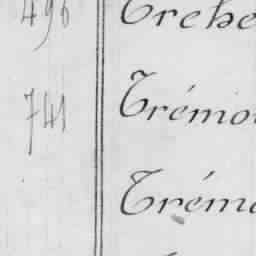 496 Trehe
741 Trémo
Tréma